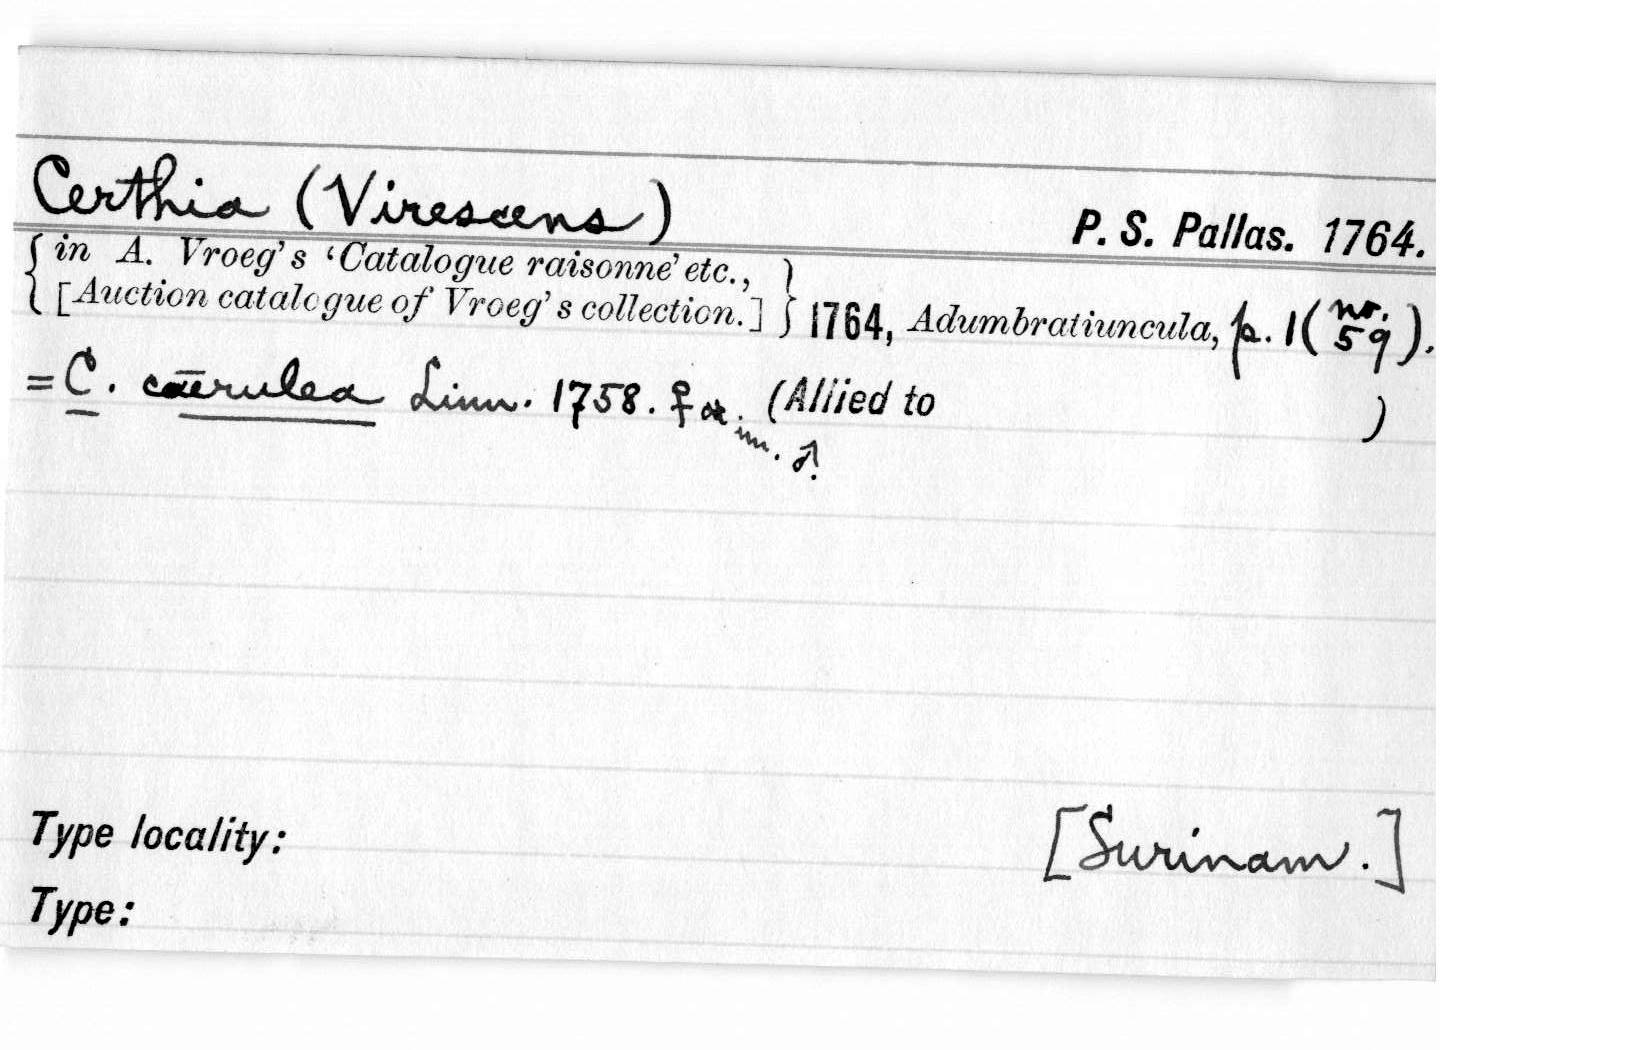 Certhia (Virescens)
P. S. Pallas. 1764.
{ in A. Vroeg's 'Catalogue raisonné' etc., }
{ [Auction catalogue of Vroeg's collection.] } 1764, Adumbratiuncula, p. 1 (no. 59).
= C. caerulea Linn. 1758. ♀ or im. ♂. (Allied to )
Type locality: [Surinam.]
Type: